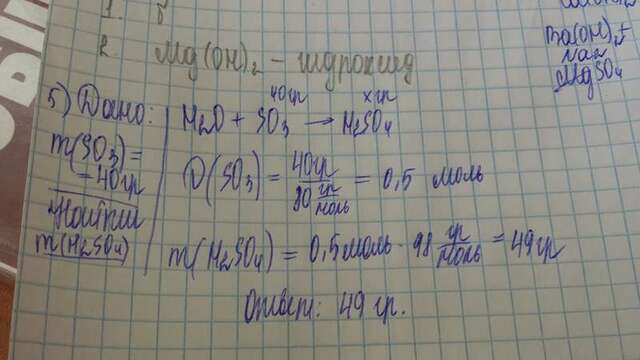 1. б
2 Mg(OH)₂ - гидроксид
Ba(OH)₂+
MgSO₄
5) Дано:
m(SO₃)=
-40гр
Найти
m(H₂SO₄)
40гр хгр
H₂O + SO₃ → H₂SO₄
D(SO₃) = 40гр / 80 гр/моль = 0,5 моль
m(H₂SO₄) = 0,5моль · 98 гр/моль = 49гр
Ответ: 49 гр.